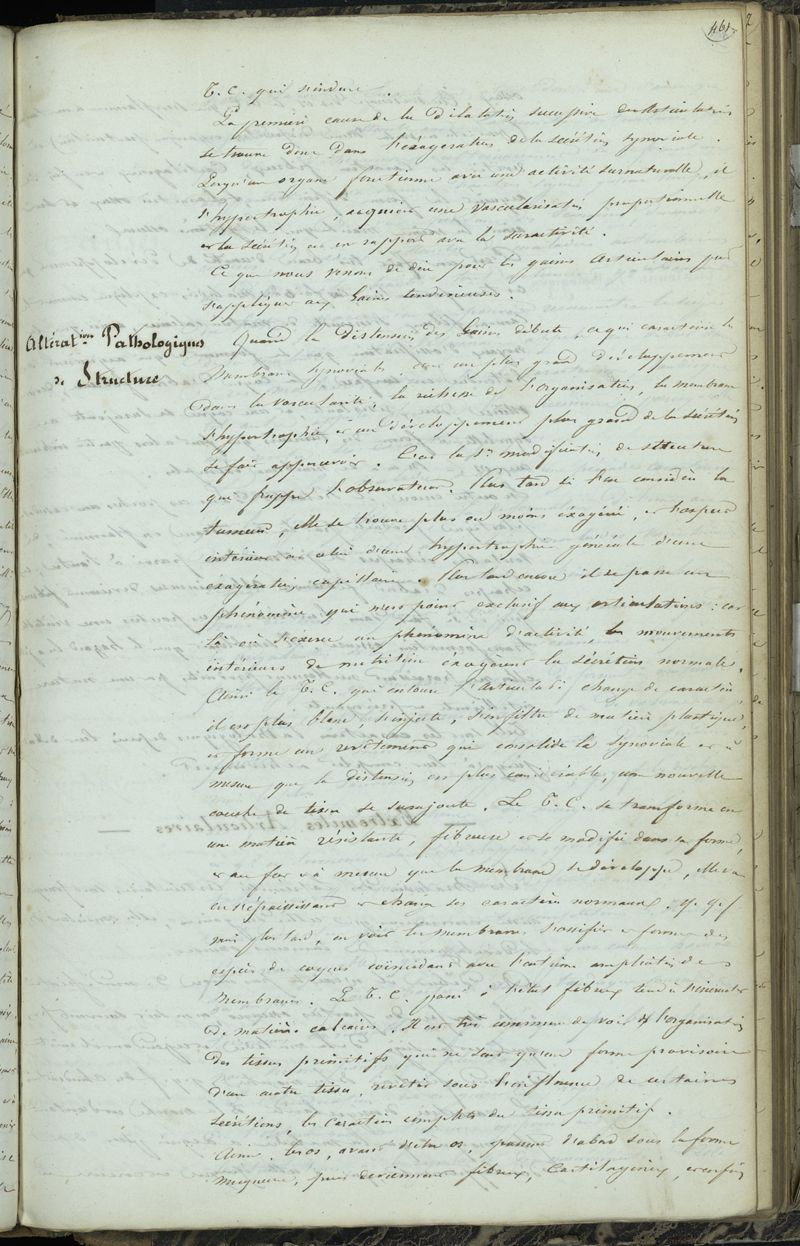 461
T. C. qui s'indure.
La première cause de la Dilatation successive des Articulations
se trouve donc dans l'exagération de la sécrétion synoviale.
Lorsqu'un organe fonctionne avec une activité surnaturelle, il
s'hypertrophie, acquiert une vascularisation proportionnelle
et la sécrétion est en rapport avec la suractivité.
Ce que nous venons de dire pour les gaines Articulaires peut
s'appliquer aux Gaines tendineuses.
Altérat.ions Pathologiques
de Structure
Quand la Distension des Gaines débute, ce qui caractérise la
Membrane Synoviale, c'est un plus grand développement
dans la vascularité, la richesse de l'organisation, la membrane
s'hypertrophie, et un développement plus grand de la sécrétion
se fait appercevoir. C'est la 1re modification de structure
qui frappe l'observateur. Plus tard si l'on considère la
tumeur, elle se trouve plus ou moins exagérée, et l'aspect
intérieur est celui d'une hypertrophie générale d'une
exagération capillaire. Plus tard encore il se passe un
phénomène qui n'est point exclusif aux articulations : car
là où s'exerce un phénomène d'activité, les mouvements
intérieurs de nutrition exagèrent la sécrétion normale.
Ainsi le T. C. qui entoure l'articulation change de caractère,
il est plus blanc, s'injecte, s'infiltre de matière plastique,
et forme un revêtement qui consolide la synoviale et à
mesure que la distension est plus considérable, une nouvelle
couche de tissu se surajoute. Le T. C. se transforme en
une matière résistante, fibreuse et se modifie dans sa forme,
et au fur et à mesure que la membrane se développe, elle va
en s'épaississant et change ses caractères normaux.
plus tard, on voit les membranes s'ossifier et former des
espèces de coques coïncidant avec l'extrême amplitude des
Membranes. Le T. C. passé à l'état fibreux tend à s'incruster
de matière calcaire. Il est très commun de voir l'organisation
des tissus primitifs qui ne sont qu'une forme provisoire
d'un autre tissu, revêtir sous l'influence de certaines
sécrétions, les caractères complets du tissu primitif.
Ainsi les os, avant d'être os, passent d'abord sous la forme
muqueuse, puis deviennent fibreux, cartilagineux, et enfin